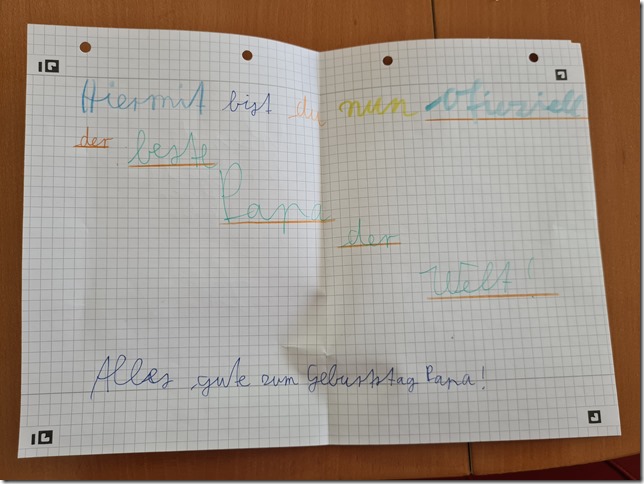 Hiermit bist du nun ofiziell
der beste
Papa
der
Welt!
Alles gute zum Geburtstag Papa!